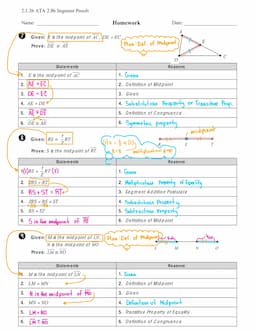 2.1.26 ATA 2.B6 Segment Proofs
Name: Homework Date:
7 Given: E is the midpoint of AC, DE = EC
Prove: DE ≅ AE
Plan: Def. of Midpoint
A
E
D
C
Statements Reasons
1. E is the midpoint of AC 1. Given
2. AE = EC 2. Definition of Midpoint
3. DE = EC 3. Given
4. AE = DE 4. Substitution Property or Transitive Prop.
5. AE ≅ DE 5. Definition of Congruence
6. DE ≅ AE 6. Symmetric property
8 Given: RS = 1/2 RT
Prove: S is the midpoint of RT
midpoint
R S T
Statements Reasons
1. Given
2. 2RS = RT 2. Multiplication Property of Equality
3. RS + ST = RT 3. Segment Addition Postulate
4. 2RS = RS + ST 4. Substitution Property
5. RS = ST 5. Subtraction Property
6. S is the midpoint of RT 6. Definition of Midpoint
9 Given: M is the midpoint of LN
N is the midpoint of MO
Prove: LM ≅ NO
Plan: Def. of Midpoint
L M N O
Statements Reasons
1. M is the midpoint of LN 1. Given
2. LM = MN 2. Definition of Midpoint
3. N is the midpoint of MO 3. Given
4. MN = NO 4. Definition of Midpoint
5. LM = NO 5. Transitive Property of Equality
6. LM ≅ NO 6. Definition of Congruence